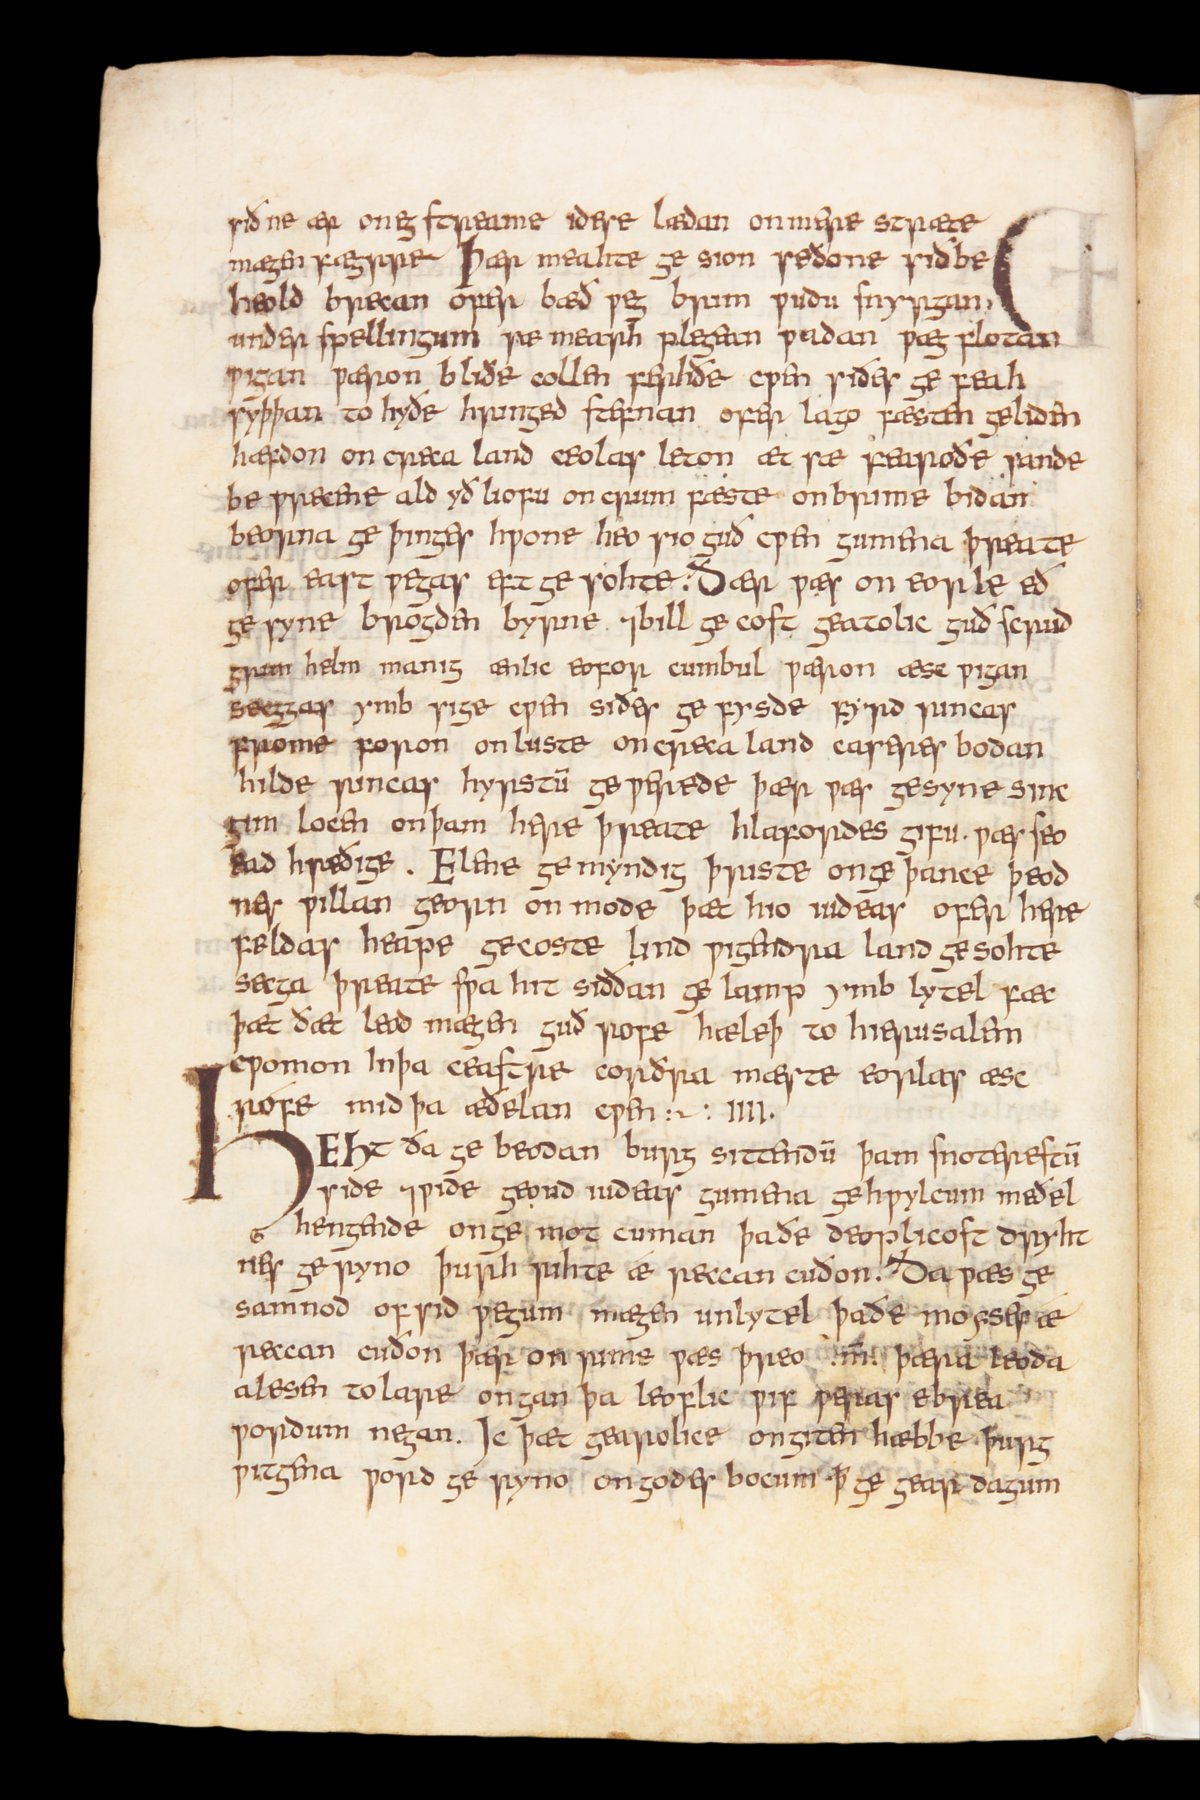 sið ne ær on eg streame idese lædan on mere stræte
mægen fægrre Þær meahte ge sion seðone sið be
heold brecan ofer bæð ƿeg brim ƿudu snyrgan.
under sƿellingum sæ mearh plegean ƿadan ƿæg flotan
ƿigan ƿæron bliðe collen ferhðe cƿen siðes ge feah
syþþan to hyðe hringed stefnan ofer lago fæsten geliden
hæfdon on creca land ceolas leton æt sæ fearoðe sande
be ƿrecene ald yð liofu on crum fæste on brime bidan
beorna ge þinges hƿone heo sio guð cƿen gumena þreate
ofer east ƿegas eft ge sohte. Ðær ƿæs on eorle eð
ge syne brogden byrne ⁊bill ge cost geatolic guð scrud
grim helm mænig ænlic eofor cumbul ƿæron æsc ƿigan
secggas ymb sige cƿen siðes ge fysde fyrd rincas
frome foron on luste on creca land caseres bodan
hilde rincas hyrstū ge ƿerede þær ƿæs gesyne sinc
gim locen on þam here þreate hlafordes gifu. ƿæs seo
ead hreðige. Elene ge myndig þriste on ge þance þeod
nes ƿillan georn on mode þæt hio iudeas ofer here
feldas heape gecoste lind ƿigendra land ge sohte
secga þreate sƿa hit siððan ge lamp ymb lytel fæc
þæt ðæt leod mægen guð rofe hæleþ to hierusalem
cƿomon inþa ceastre corðra mæste eorlas æsc
rofe mid þa æðelan cƿen :~ : IIII.
HEHt ða ge beodan burg sittendū þam snoterestū
side ⁊ƿide geond iudeas gumena gehƿylcum meðel
hengende on ge mot cuman þaðe deoplicost dryht
nes ge ryno þurh rihte æ reccan cuðon. Ða ƿæs ge
samnod of sid ƿegum mægen unlytel þaðe moyses æ
reccan cuðon þær on rime ƿæs þreo .m̄. þæra leoda
alesen to lare ongan þa leoflic ƿif ƿeras ebrea
ƿordum negan. Ic þæt gearolice ongiten hæbbe þurg
ƿitgena ƿord ge ryno on godes bocum ꝥ ge gear dagum